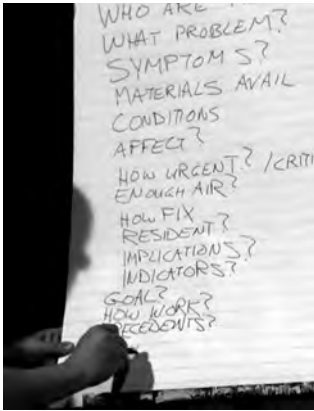 WHO ARE
WHAT PROBLEM?
SYMPTOMS?
MATERIALS AVAIL
CONDITIONS
AFFECT?
HOW URGENT? /CRITI
ENOUGH AIR?
HOW FIX
RESIDENT?
IMPLICATIONS?
INDICATORS?
GOAL?
HOW WORK?
ECEDENTS?